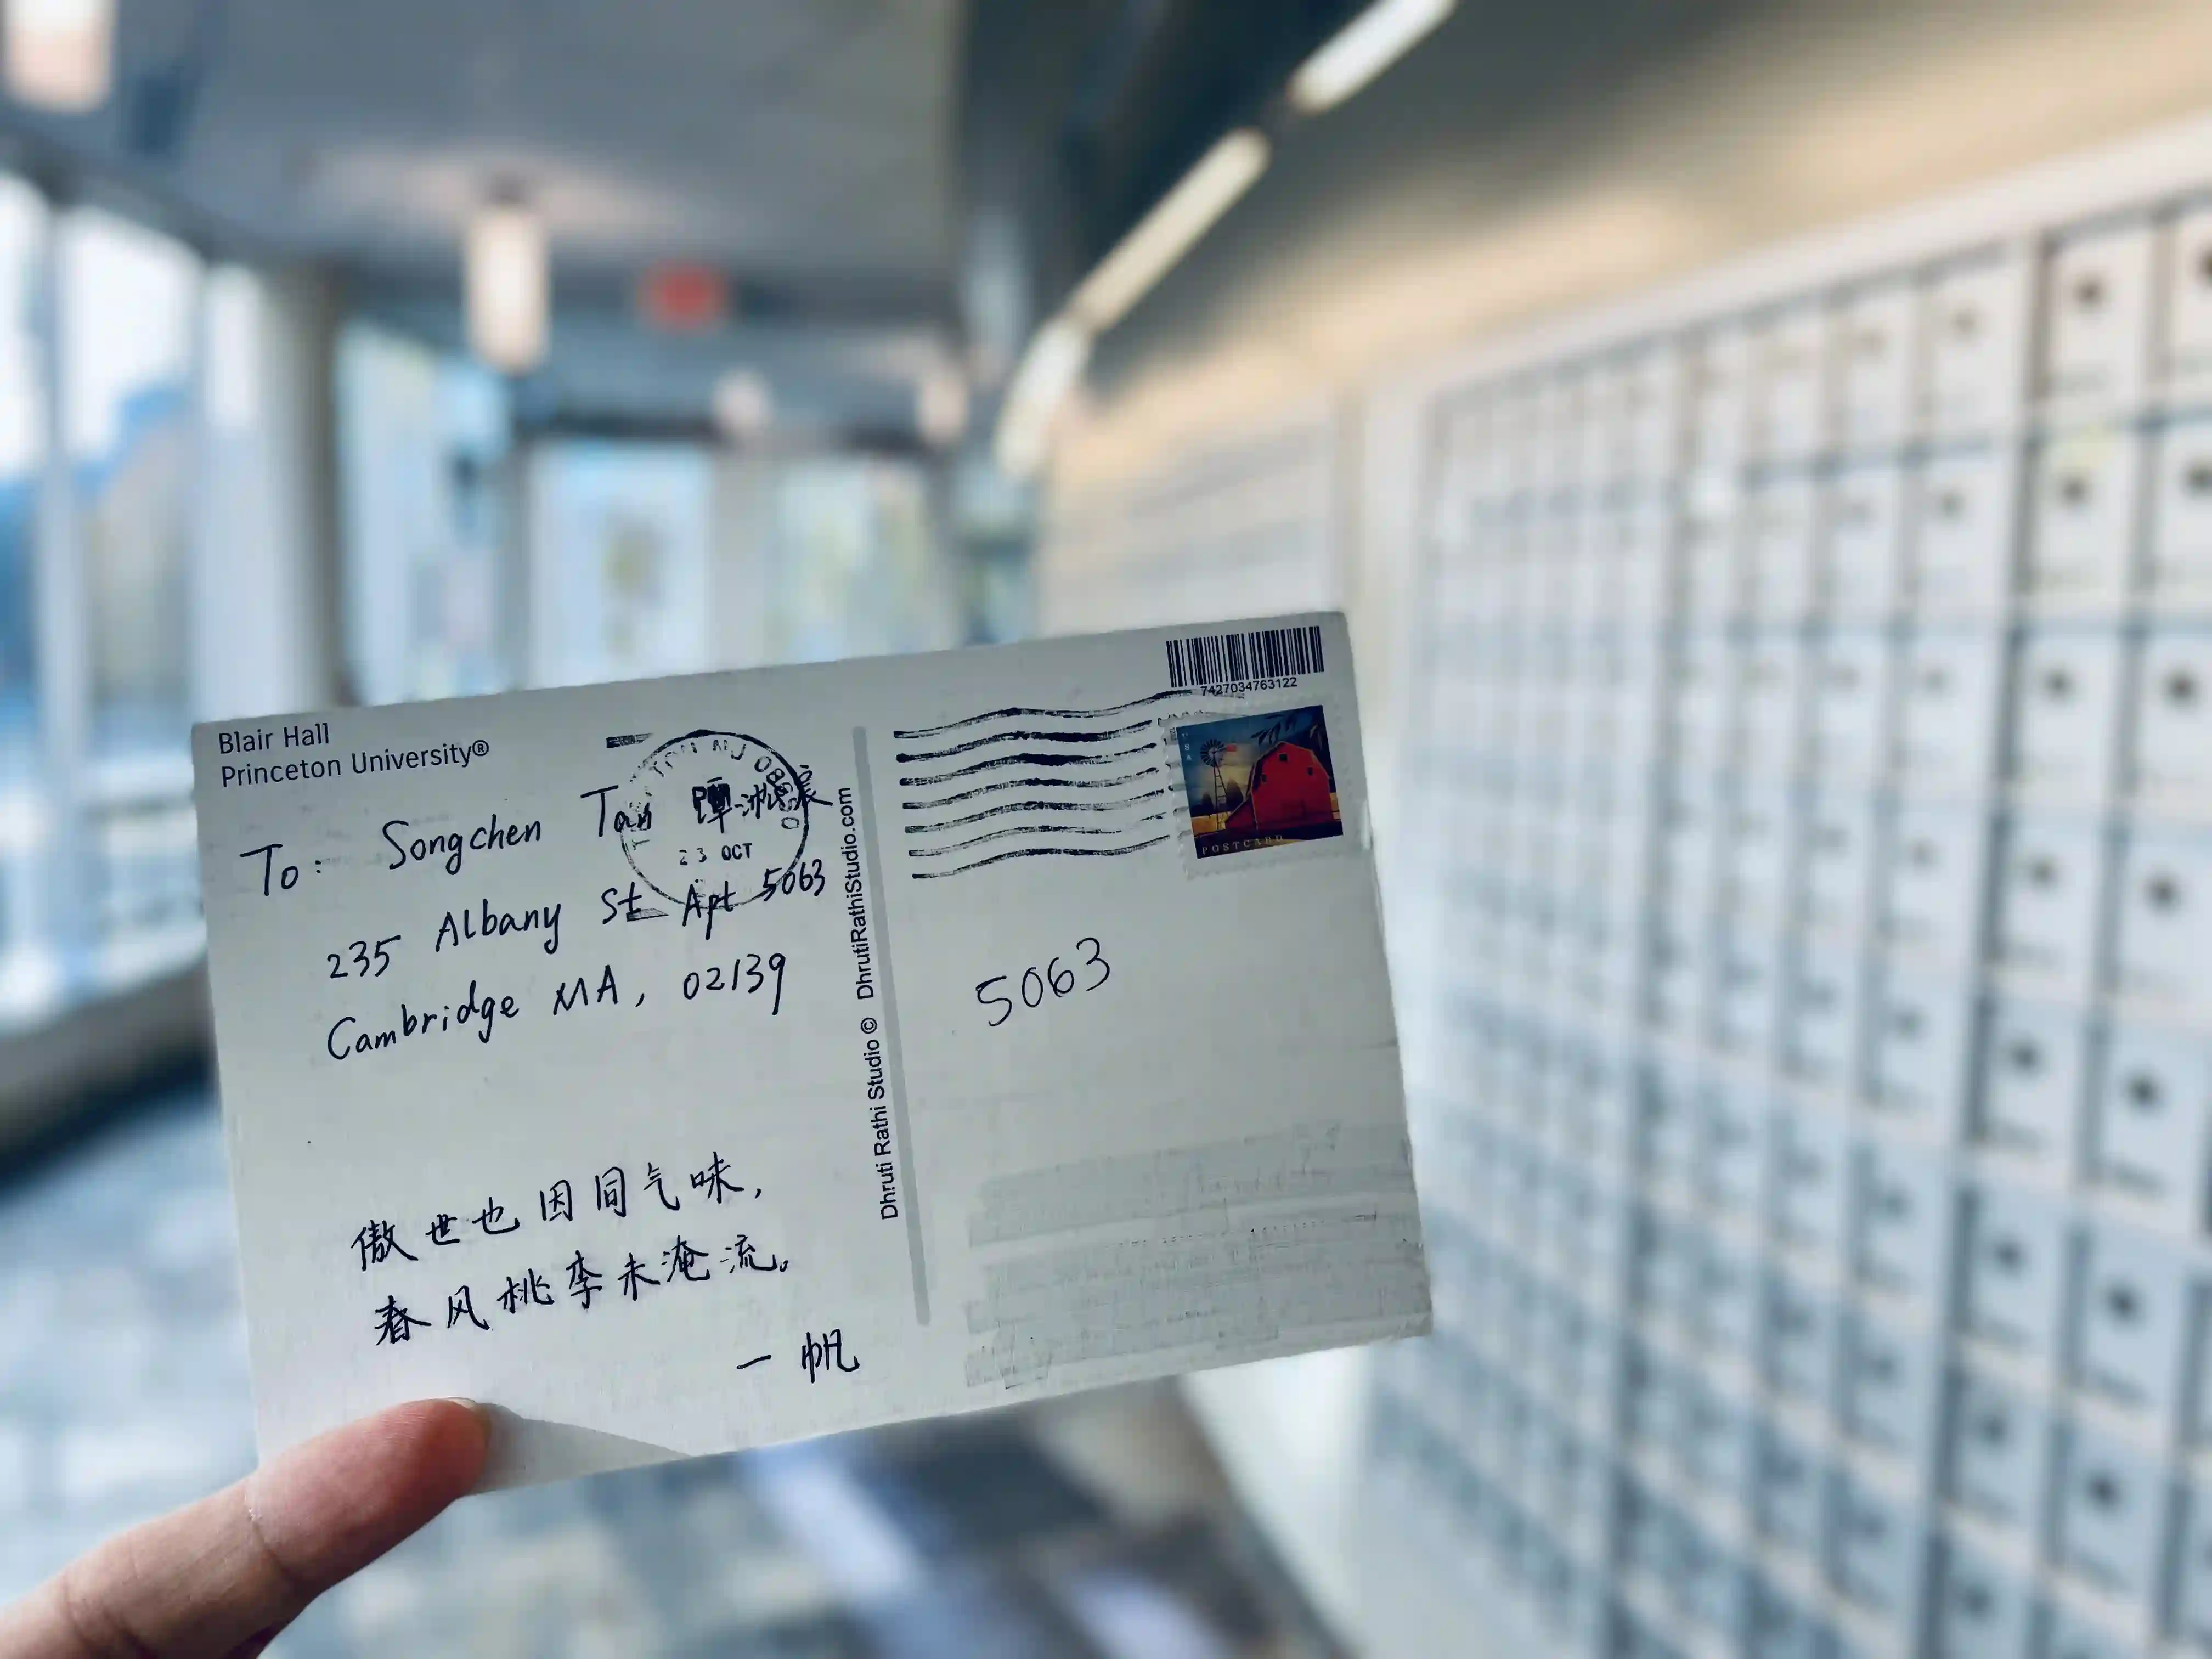 Blair Hall
Princeton University®
To: Songchen Tan 谭淞宸
235 Albany St Apt 5063
Cambridge MA, 02139
23 OCT
傲世也因同气味，
春风桃李未淹流。
一帆
Dhruti Rathi Studio © DhrutiRathiStudio.com
7427034763122
POSTCARD
5063